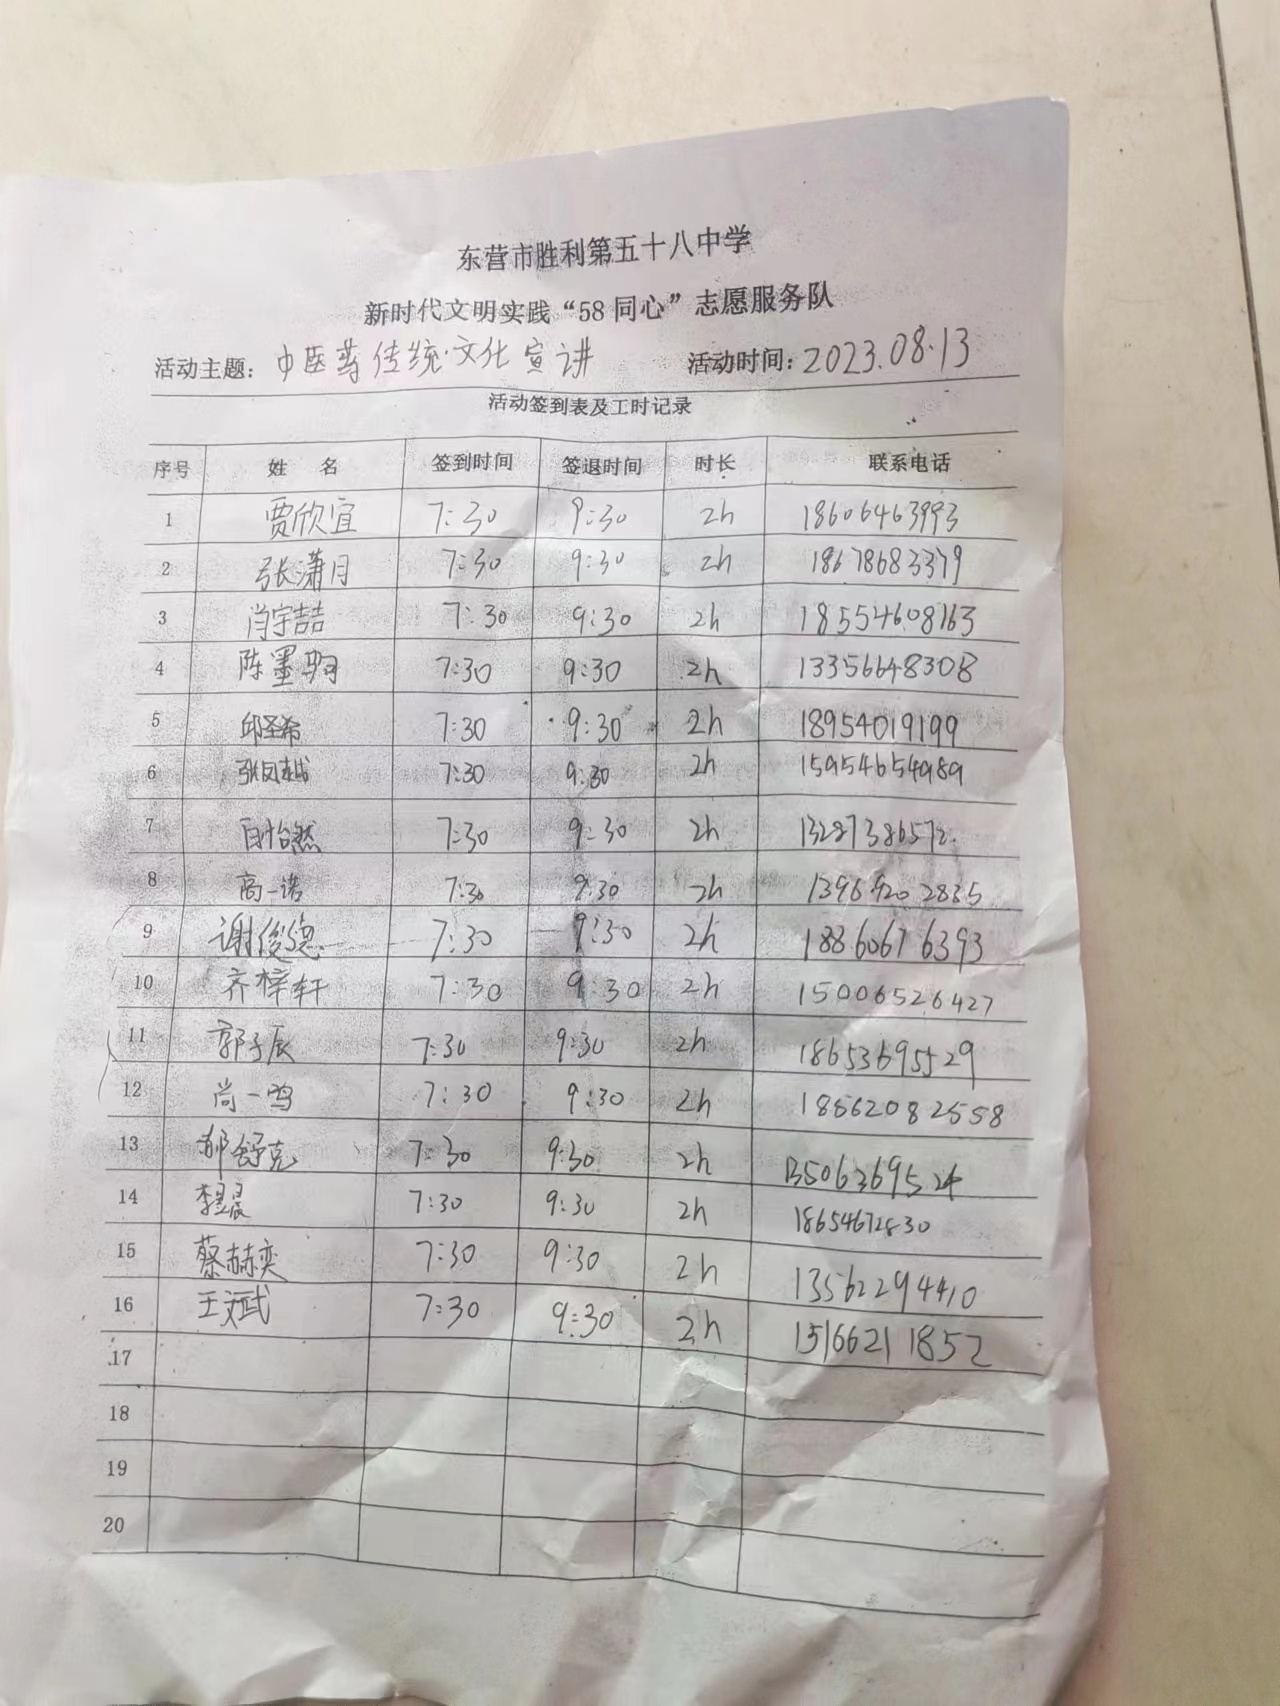 东营市胜利第五十八中学
新时代文明实践“58同心”志愿服务队
活动主题：中医药传统文化宣讲 活动时间：2023.08.13
活动签到表及工时记录
序号 姓 名 签到时间 签退时间 时长 联系电话
1 贾欣宜 7:30 9:30 2h 18606463993
2 张潇月 7:30 9:30 2h 18678683379
3 肖宇喆 7:30 9:30 2h 18554608763
4 陈墨驹 7:30 9:30 2h 13356648308
5 邱圣希 7:30 9:30 2h 18954019199
6 张凤越 7:30 9:30 2h 15954654989
7 白怡然 7:30 9:30 2h 13287386572
8 高一诺 7:30 9:30 2h 13969202835
9 谢俊德 7:30 9:30 2h 18860676393
10 齐梓轩 7:30 9:30 2h 15006526427
11 郭子辰 7:30 9:30 2h 18653695529
12 尚一鸣 7:30 9:30 2h 18562082558
13 郁舒克 7:30 9:30 2h
14 7:30 9:30 2h 18654672830
15 蔡赫奕 7:30 9:30 2h 13562294410
16 王斌 7:30 9:30 2h 15166211852
17
18
19
20